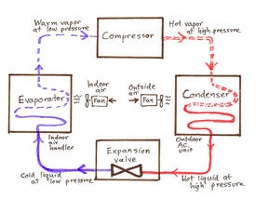 Warm vapor
at low pressure
Compressor
Hot vapor
at high pressure
Evaporator
Indoor
air
Fan
Outside
air
Fan
Condenser
Indoor
air
handler
Expansion
valve
Outdoor
A.C.
unit
Cold liquid
at low pressure
Hot liquid
at high pressure